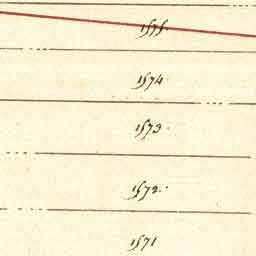 1575.
1574
1573.
1572.
1571